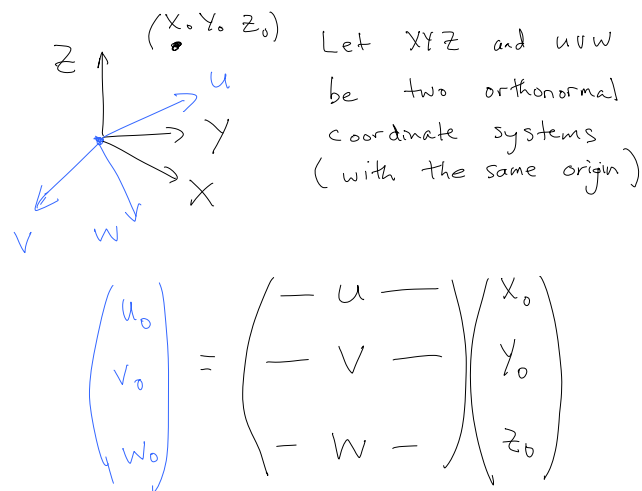 (X₀ Y₀ Z₀)
Z
u
Y
X
V
W
Let XYZ and uvw
be two orthonormal
coordinate systems
(with the same origin)
u₀ — u — X₀
v₀ = — V — Y₀
w₀ — W — Z₀